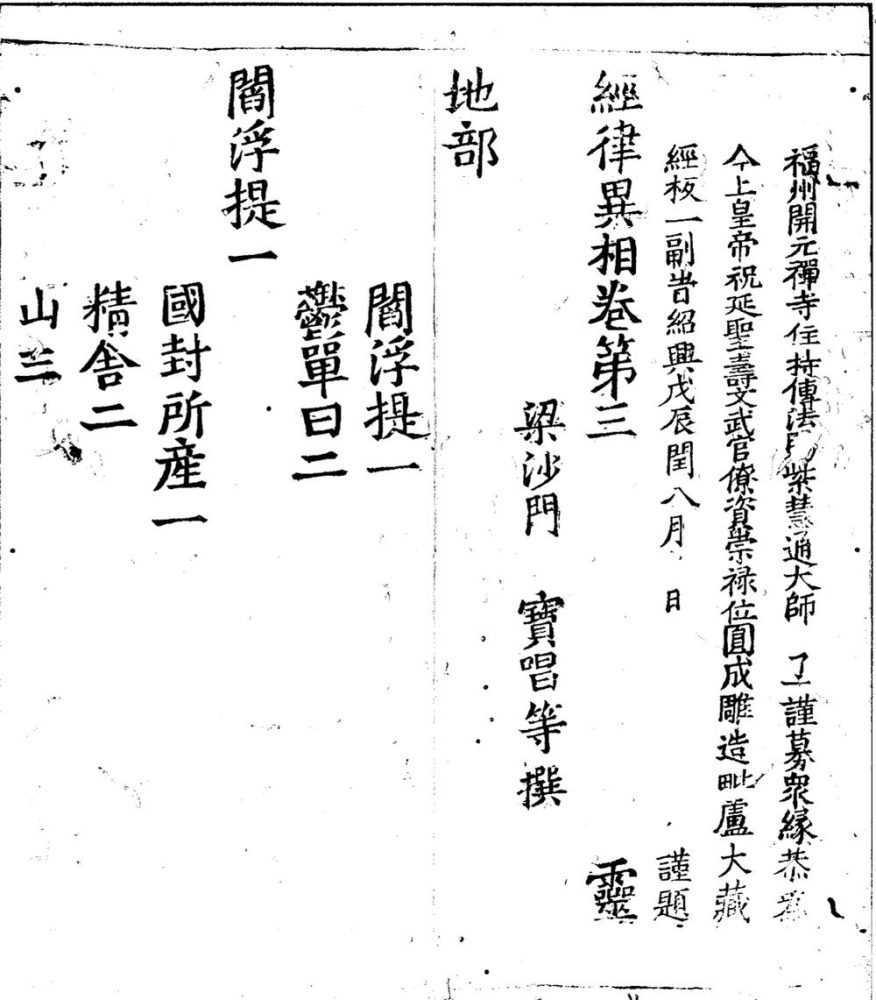 福州開元禪寺住持傳法賜紫慧通大師 了一謹募衆緣恭爲
今上皇帝祝延聖壽文武官僚資崇禄位圓成雕造毗盧大藏
經板一副旹紹興戊辰閏八月 日 謹題
經律異相卷第三 靈
梁沙門 寶唱等撰
地部
閻浮提一
鬱單曰二
閻浮提一
國封所產一
精舍二
山三